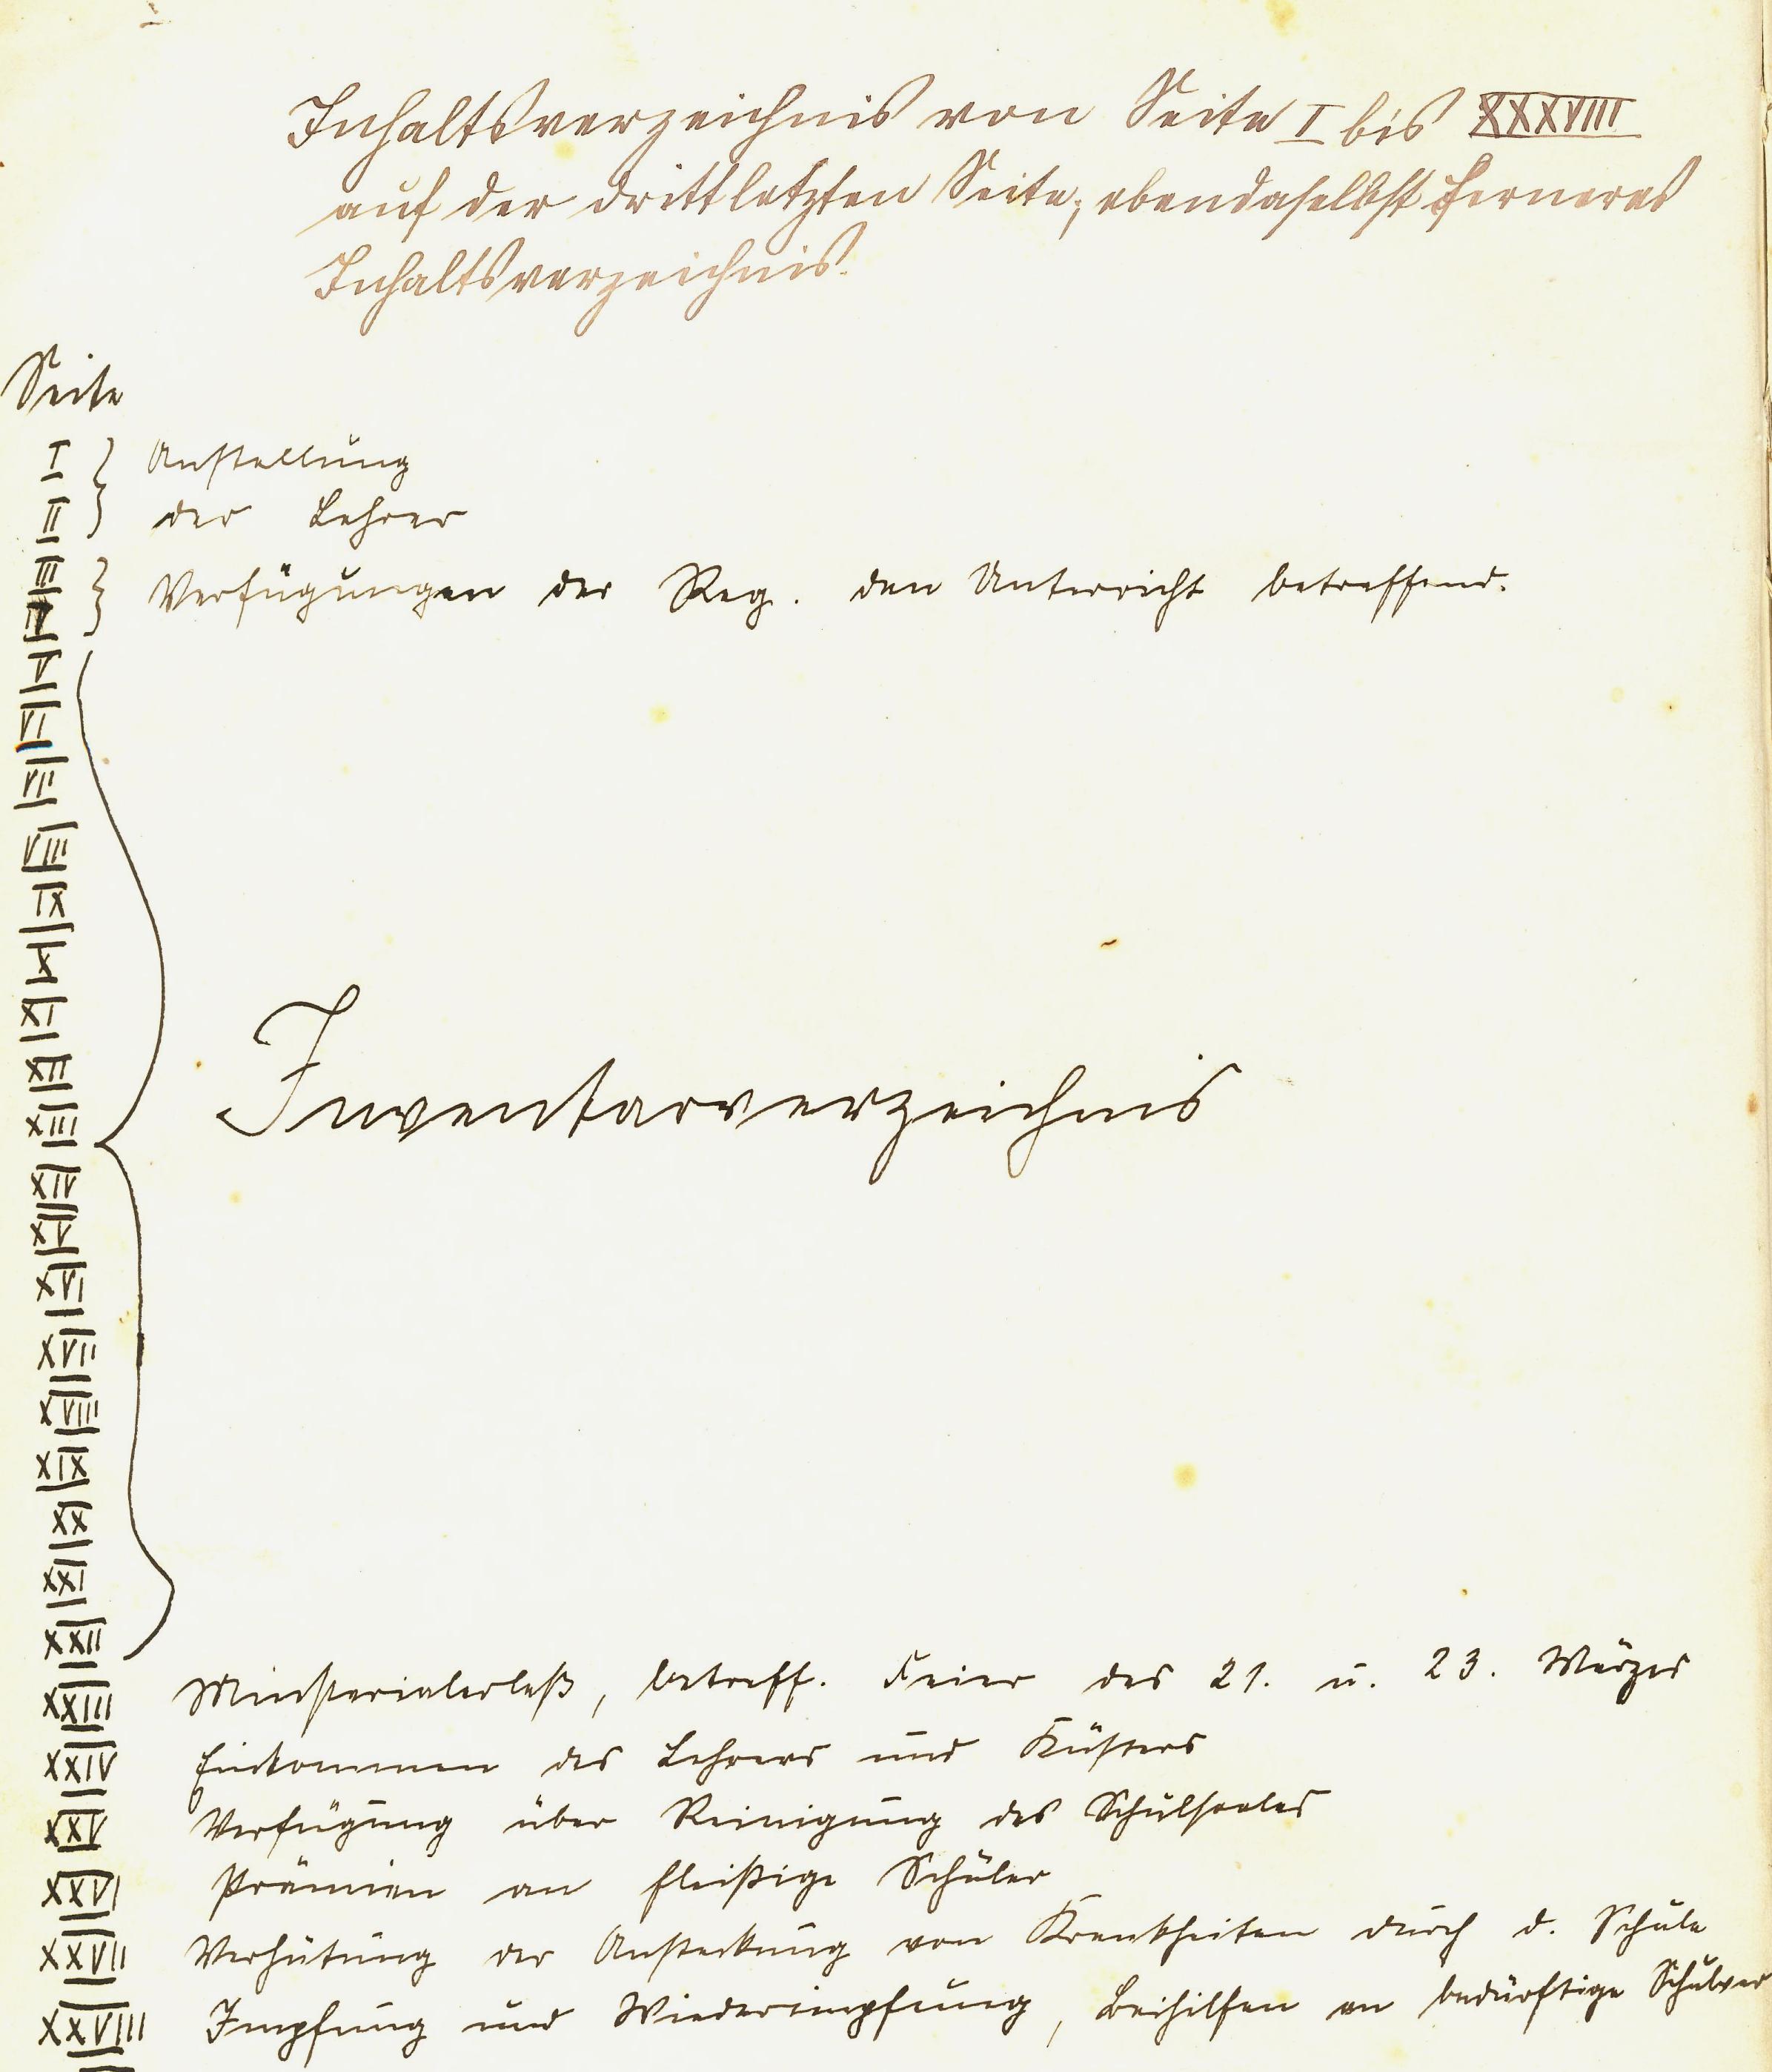 Inhaltsverzeichnis von Seite I bis XXXVIII
auf der drittletzten Seite; ebendaselbst ferneres
Inhaltsverzeichnis.
Seite
I Anstellung
II der Lehrer
III Verfügungen der Reg. den Unterricht betreffend.
IV
V
VI
VII
VIII
IX
X
XI
XII
Inventarverzeichnis
XIII
XIV
XV
XVI
XVII
XVIII
XIX
XX
XXI
XXII
XXIII Ministerialerlaß, betreff. Feier des 21. u. 23. Märzes
XXIV Einkommen des Lehrers und Küsters
XXV Verfügung über Reinigung des Schulsaales
XXVI Prämien an fleißige Schüler
XXVII Verhütung der Ansteckung von Krankheiten durch d. Schule
XXVIII Impfung und Wiederimpfung, Beihilfen an bedürftige